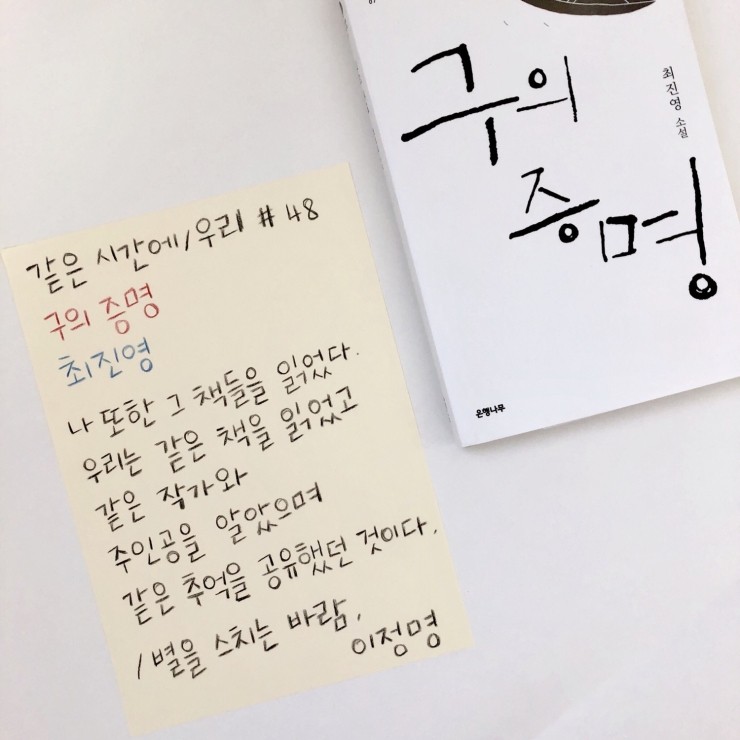 같은 시간에/우리 # 48
구의 증명
최진영
나 또한 그 책들을 읽었다.
우리는 같은 책을 읽었고
같은 작가와
주인공을 알았으며
같은 추억을 공유했던 것이다.
/별을 스치는 바람,
이정명
구의
증명
최진영 소설
은행나무